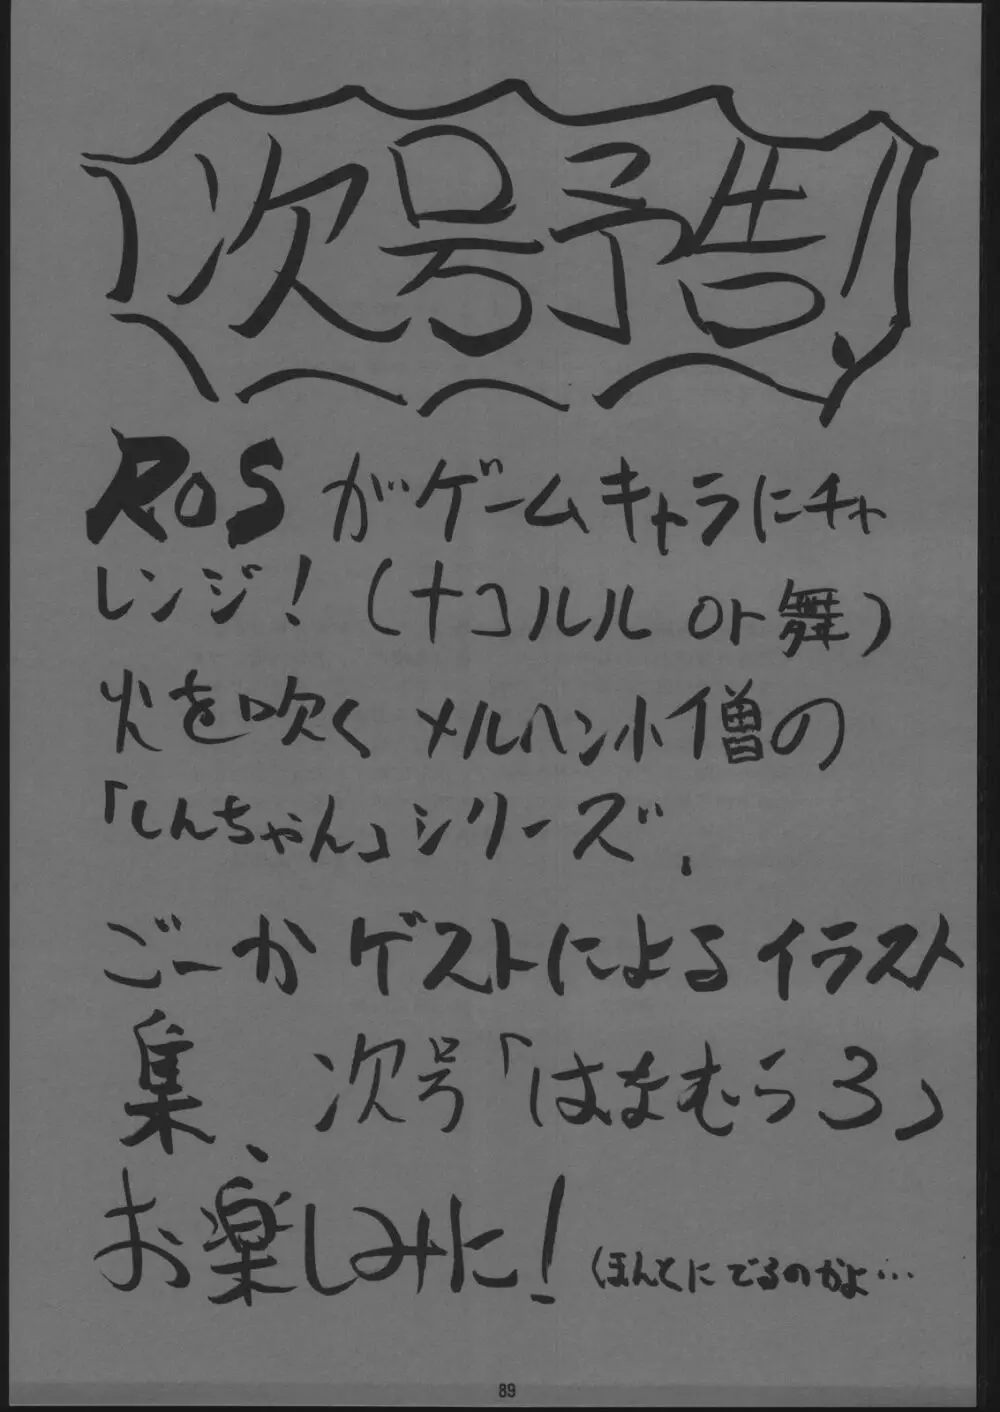 次号予告!
RoSがゲームキャラにチャ
レンジ!(ナコルル or 舞)
火を吹くメルヘン小僧の
「しんちゃん」シリーズ、
ごーかゲストによるイラスト
集、次号「はなむら3」
お楽しみに! (ほんとにでるのかよ…
89